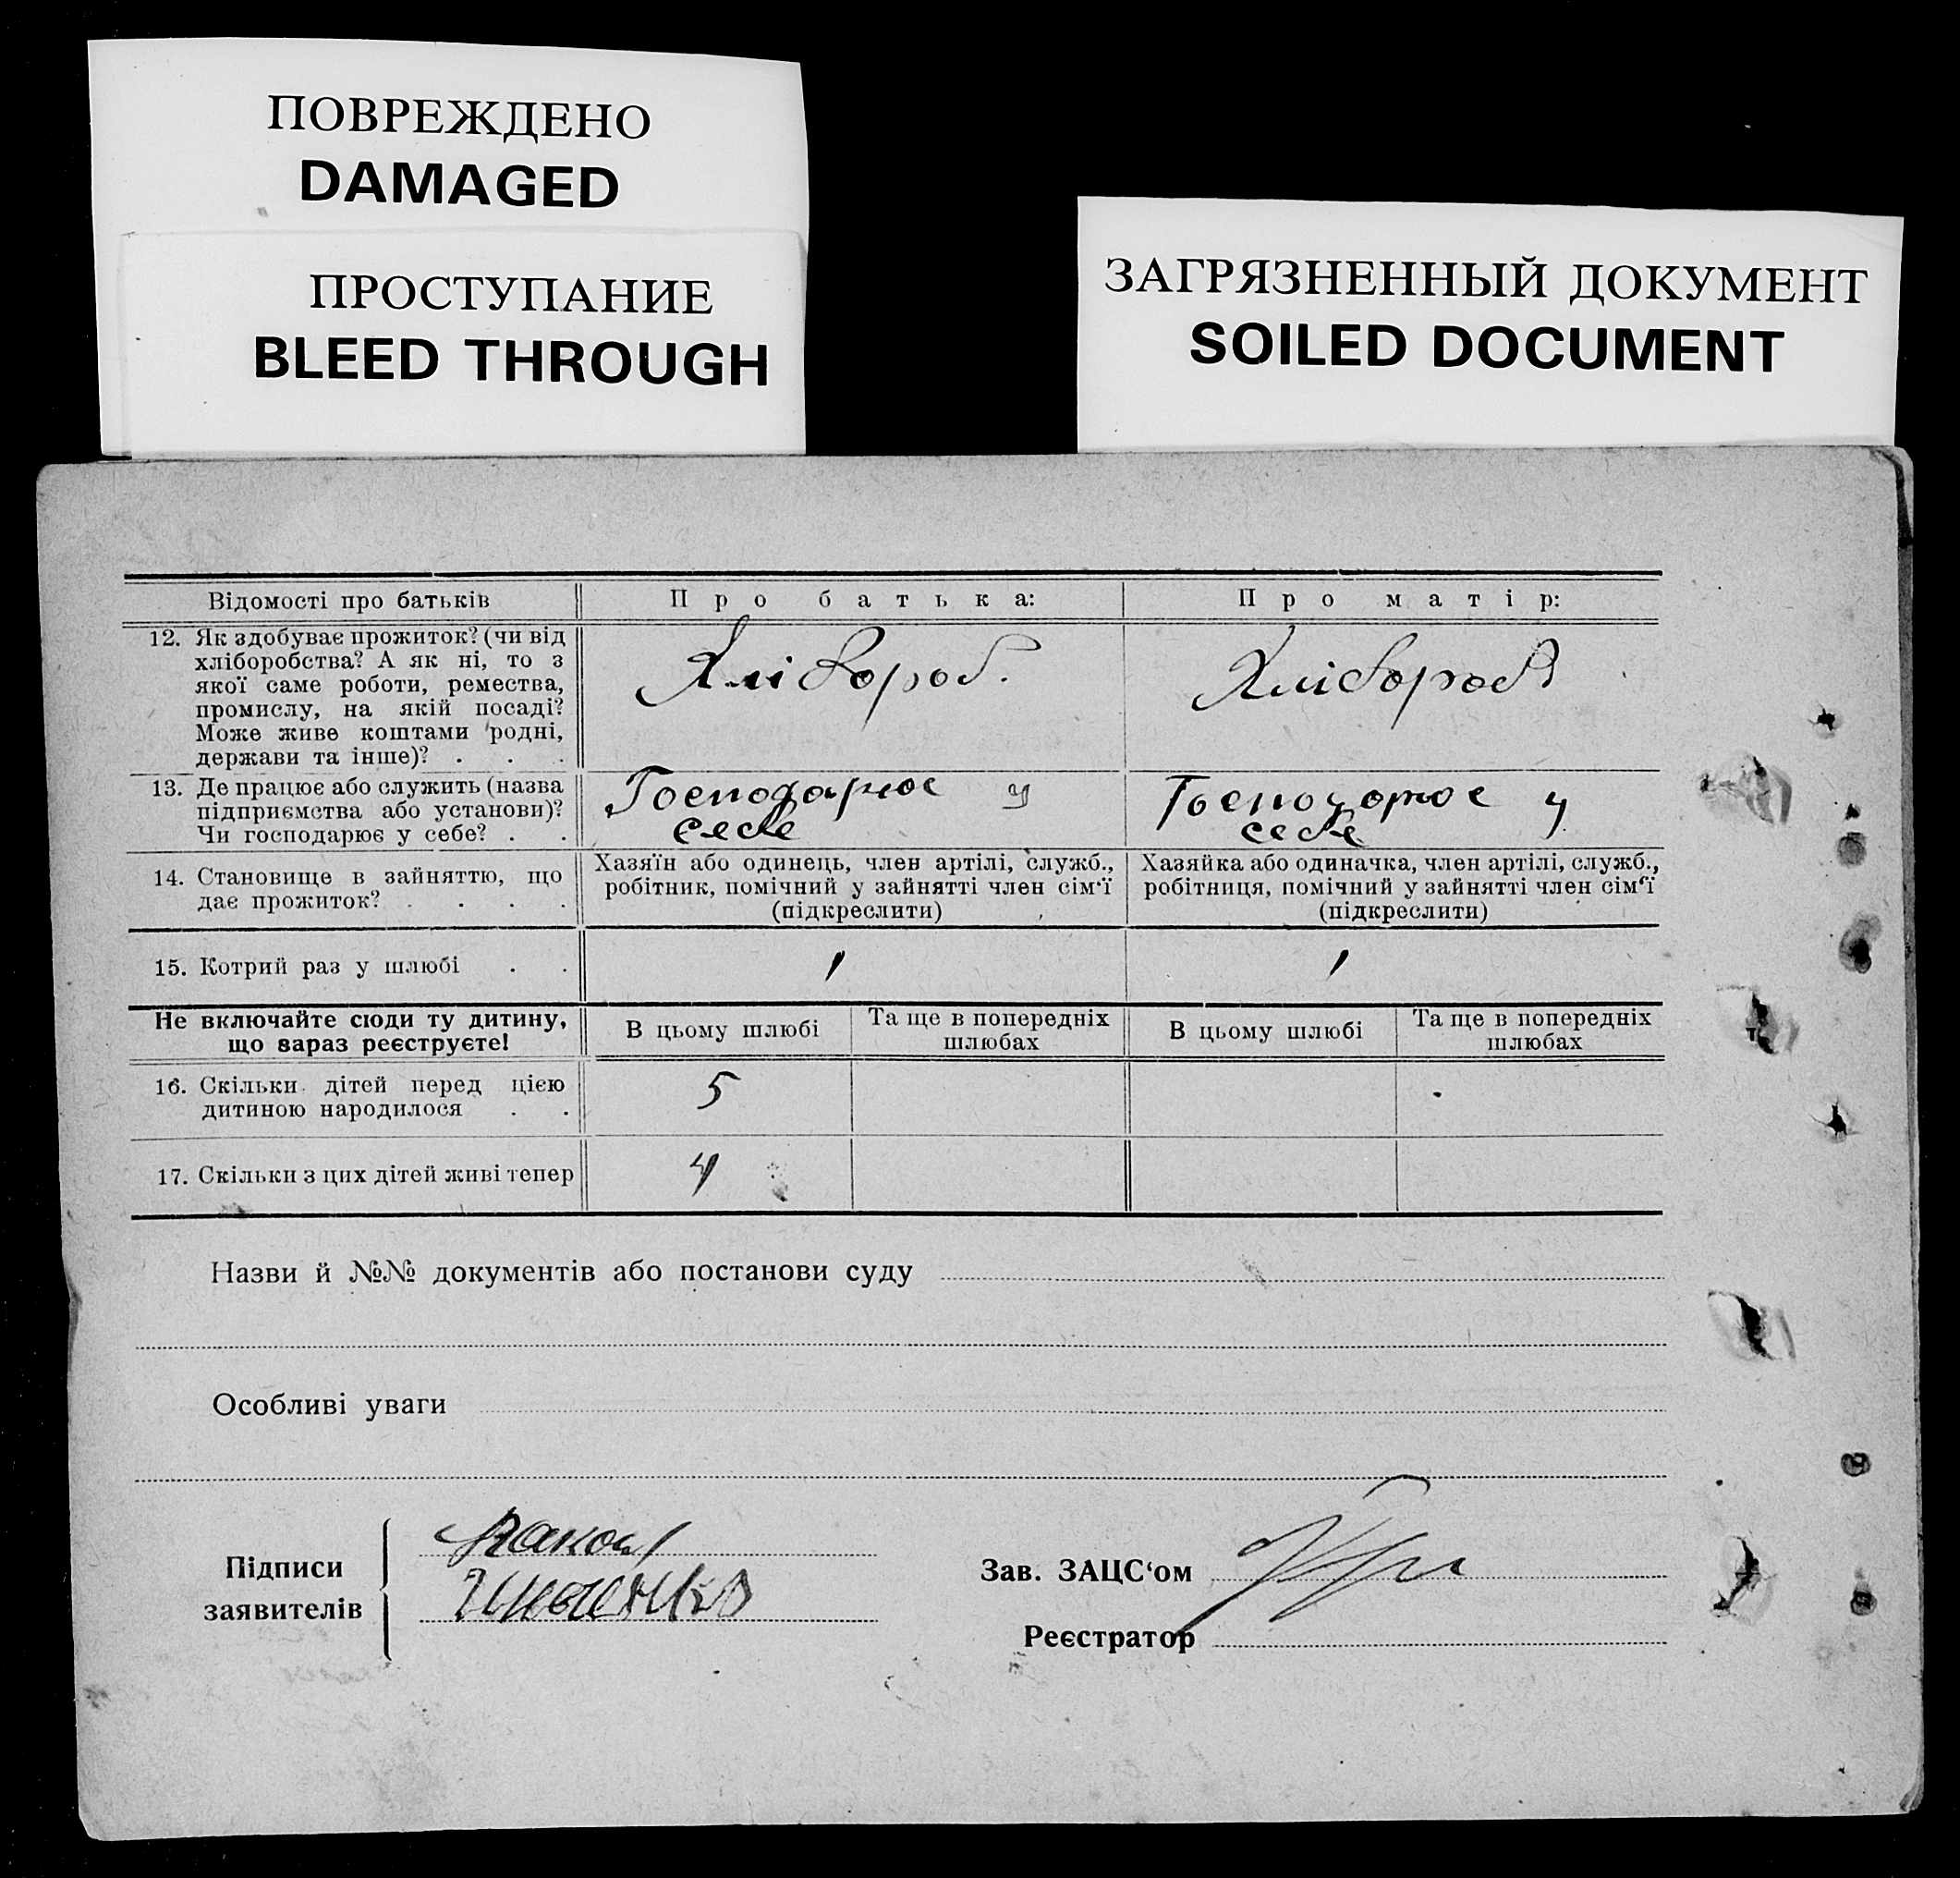 ПОВРЕЖДЕНО
DAMAGED
ПРОСТУПАНИЕ
BLEED THROUGH
ЗАГРЯЗНЕННЫЙ ДОКУМЕНТ
SOILED DOCUMENT
Відомості про батьків Про батька: Про матір:
12. Як здобуває прожиток? (чи від
хліборобства? А як ні, то з
якої саме роботи, ремества,
промислу, на якій посаді?
Може живе коштами родні,
держави та інше)? . . .
Хлібороб. Хлібороб
13. Де працює або служить (назва
підприємства або установи)?
Чи господарює у себе? . .
Господарює у
себе
Господарює у
себе
14. Становище в зайняттю, що
дає прожиток? . . . .
Хазяїн або одинець, член артілі, служб.,
робітник, помічний у зайнятті член сім'ї
(підкреслити)
Хазяйка або одиначка, член артілі, служб.,
робітниця, помічний у зайнятті член сім'ї
(підкреслити)
15. Котрий раз у шлюбі . . 1 1
Не включайте сюди ту дитину,
що зараз реєструєте!
В цьому шлюбі
Та ще в попередніх
шлюбах
В цьому шлюбі
Та ще в попередніх
шлюбах
16. Скільки дітей перед цією
дитиною народилося . .
5
17. Скільки з цих дітей живі тепер 4
Назви й №№ документів або постанови суду
Особливі уваги
Підписи
заявителів
Зав. ЗАЦС'ом
Реєстратор